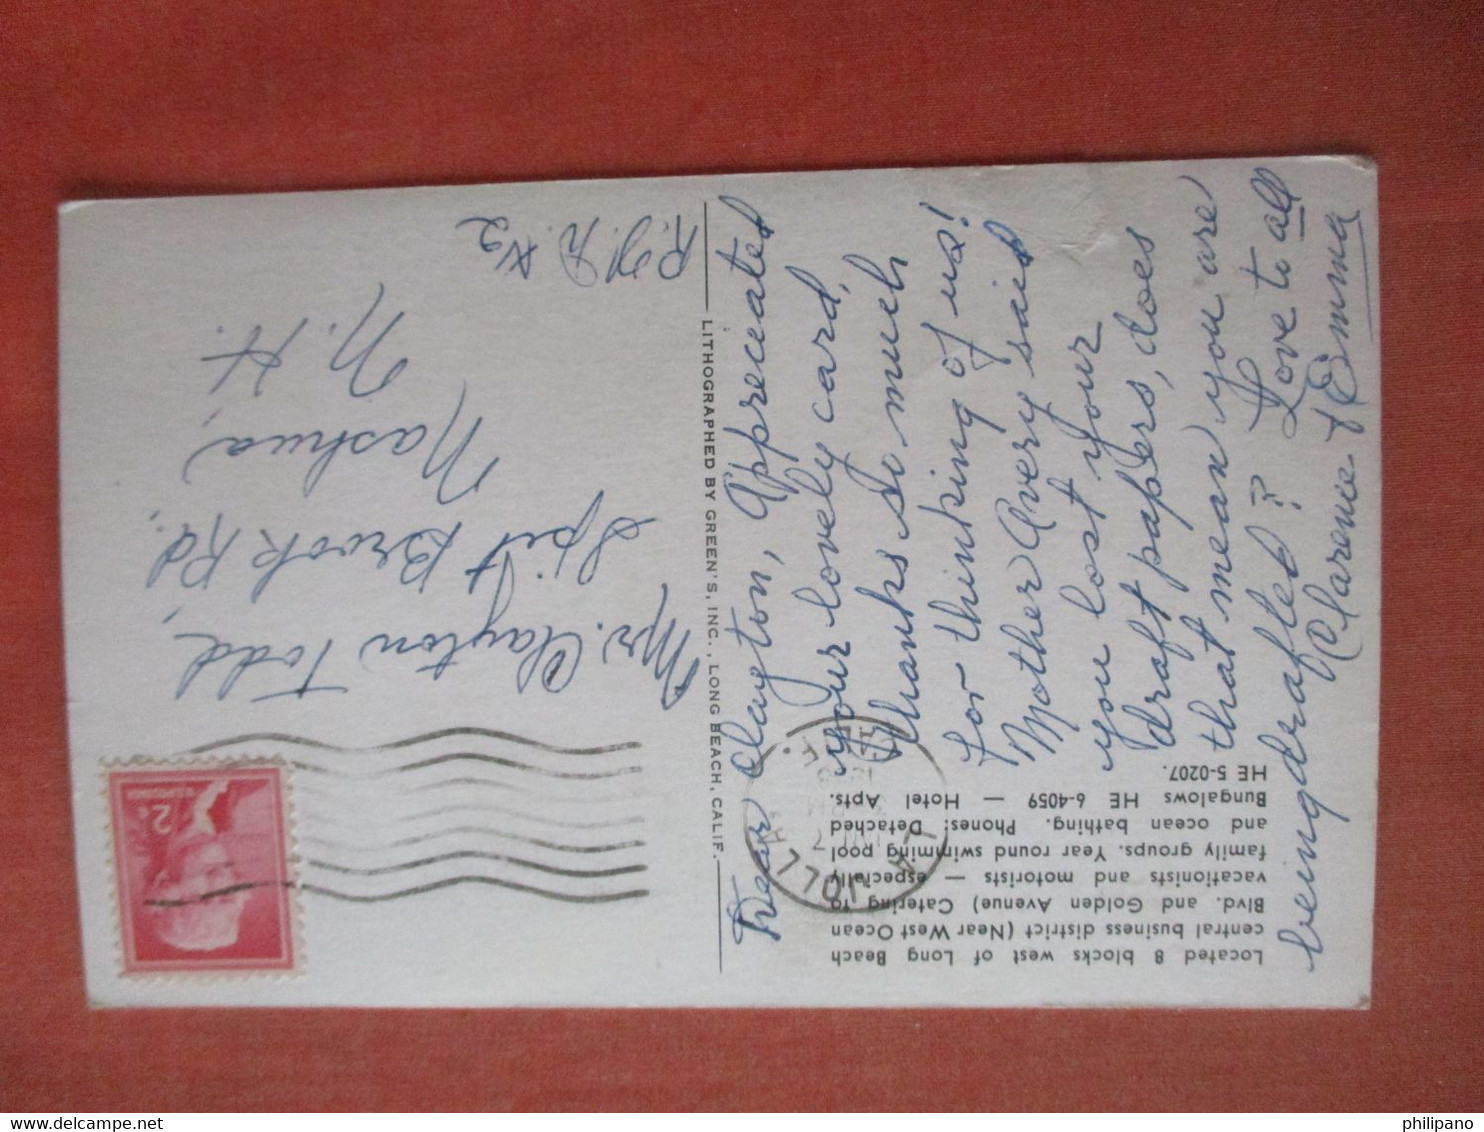 Located 8 blocks west of Long Beach
central business district (Near West Ocean
Blvd. and Golden Avenue) Catering to
vacationists and motorists — especially
family groups. Year round swimming pool
and ocean bathing. Phones: Detached
Bungalows HE 6-4059 — Hotel Apts.
HE 5-0207.
Dear Clayton, Appreceated
your lovely card,
Thanks so much
for thinking of us!
Mother Avery said
you lost your
draft papers, does
that mean you are
being drafted? Love to all
Clarence & Emma
LITHOGRAPHED BY GREEN'S, INC., LONG BEACH, CALIF.
LA JOLLA
7
PM
2¢
Mr. Clayton Todd,
Spit Brook Rd.,
Nashua,
N. H.
R.F.D. #2
philipano